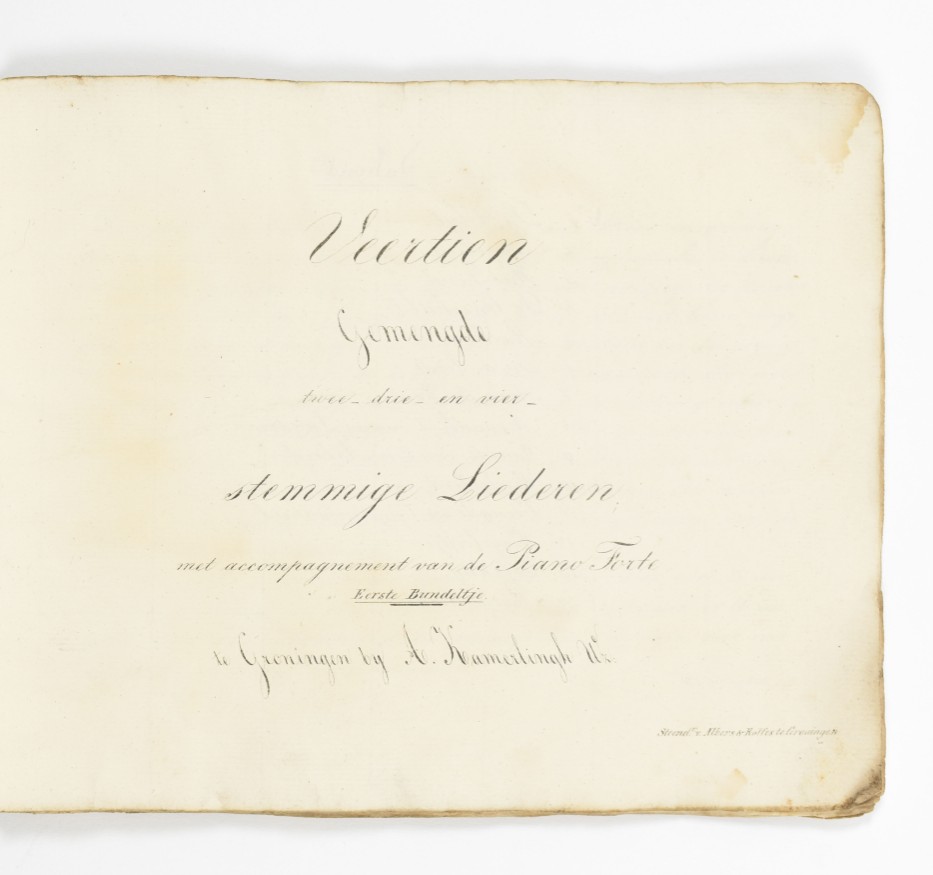 Veertien
Gemengde
twee- drie- en vier-
stemmige Liederen,
met accompagnement van de Piano Forte
Eerste Bundeltje.
te Groningen by A. Kamerlingh Wz.
v. Albers te Groningen